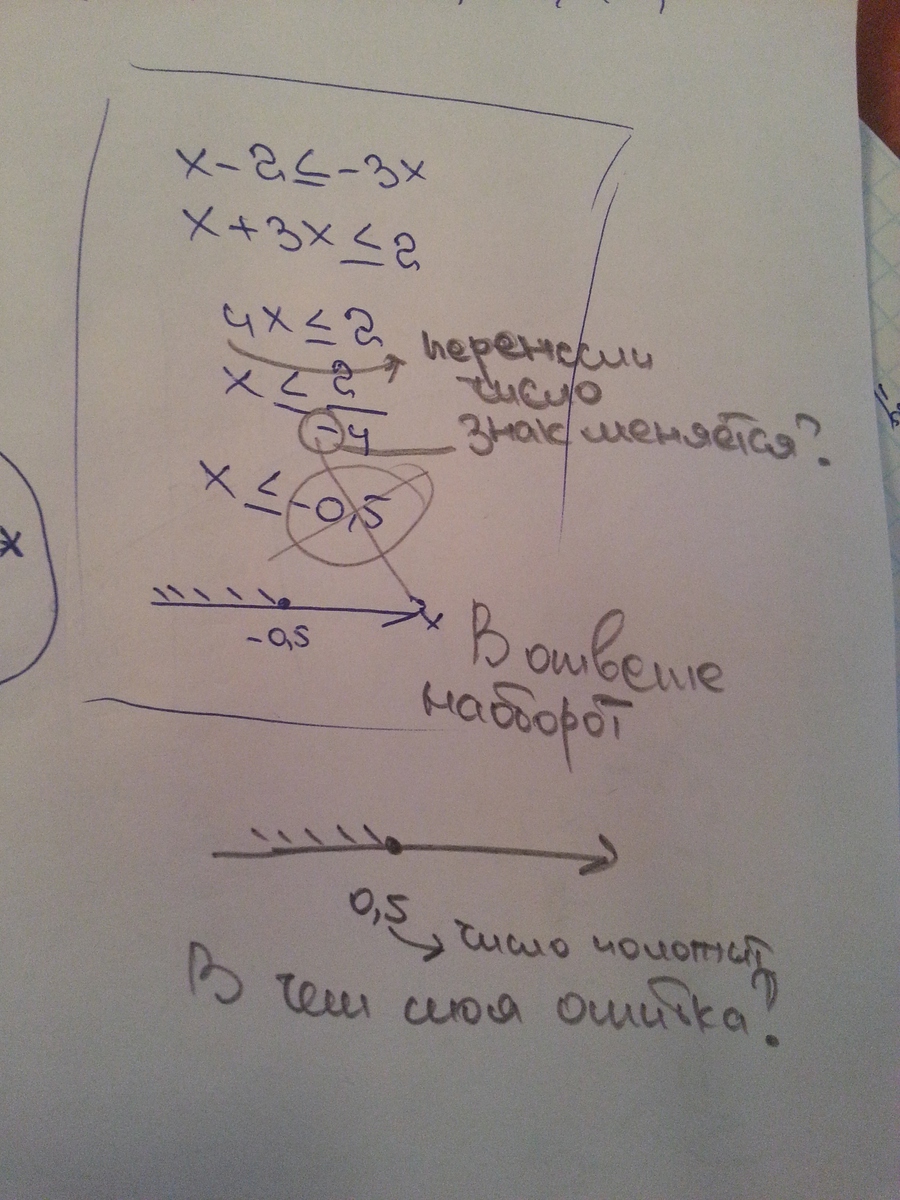 x-2≤-3x
x+3x≤2
4x≤2
x≤2/-4
перенесли
число
знак меняется?
x≤-0,5
-0,5
x
В ответе
наоборот
0,5
число положит
В чем моя ошибка?